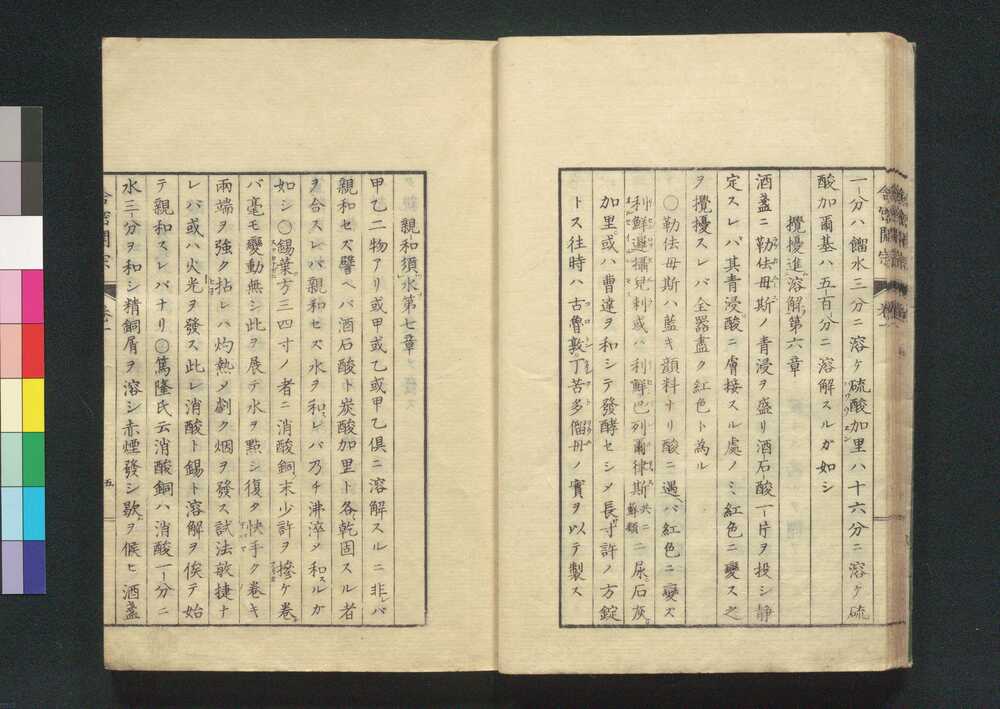 一分ハ餾水三分ニ溶ケ硫酸加里ハ十六分ニ溶ケ硫
酸加爾基ハ五百分ニ溶解スルガ如シ
攪擾進溶解第六章
酒盞ニ勒佉母斯ノ青浸ヲ盛リ酒石酸一片ヲ投シ静
定スレバ其青浸酸ニ膚接スル處ノミ紅色ニ變ス之
ヲ攪擾スレバ全器盡ク紅色ト為ル
○勒佉母斯ハ藍キ顔料ナリ酸ニ遇ヘバ紅色ニ變ズ
利鮮邏攝兒剌或ハ利鮮巴列爾律斯共ニ蘚類ニ尿石灰
加里或ハ曹達ヲ和シテ發酵セシメ長寸許ノ方錠
トス往時ハ古魯敦丁苦多僂母ノ實ヲ以テ製ス
舎密開宗 巻一
親和須水第七章
甲乙二物アリ或甲或乙或甲乙倶ニ溶解スルニ非レバ
親和セズ譬ヘバ酒石酸ト炭酸加里ト各乾固スル者
ヲ合スレバ親和セス水ヲ和スレバ乃チ沸淬メ和スルガ
如シ○錫葉方三四寸ノ者ニ消酸銅末少許ヲ摻ケ巻
バ毫モ變動無シ此ヲ展テ水ヲ點シ復タ快手ク巻キ
兩端ヲ強ク拈レハ灼熱メ劇ク烟ヲ發ス試法敏捷ナ
レバ或ハ火光ヲ發ス此レ消酸ト錫ト溶解ヲ俟テ始
テ親和スレバナリ○篤隆氏云消酸銅ハ消酸一分ニ
水三分ヲ和シ精銅屑ヲ溶シ赤煙發シ歇ヲ候ヒ酒盞
五